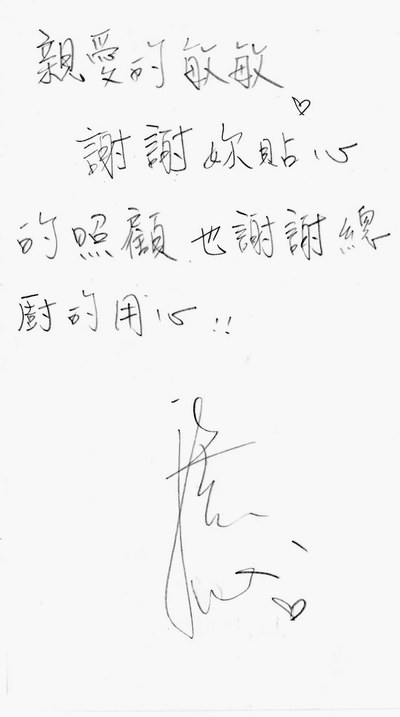 親愛的敏敏
謝謝妳貼心
的照顧也謝謝總
廚的用心!!